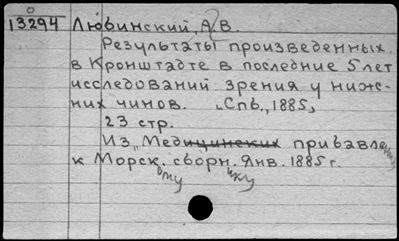 13294 Любинский, А? В.
Результаты произведенных
в Кронштадте в последние 5 лет
исследований зрения у ниж-
них чинов. Спб., 1885,
23 стр.
Из „Медицинских прибавле
к Морск. сборн. Янв. 1885 г.
ому ику